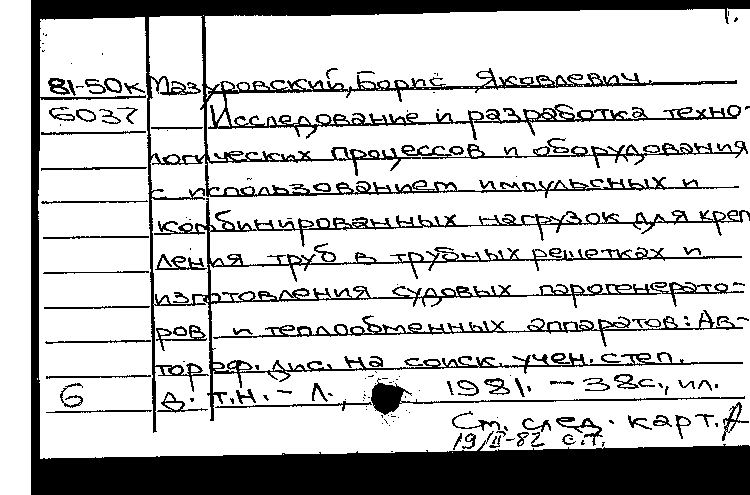 1.
81-50к Мазуровский, Борис Яковлевич.
6037 Исследование и разработка техно-
логических процессов и оборудования
с использованием импульсных и
комбинированных нагрузок для креп
ления труб в трубных решетках и
изготовления судовых парогенерато-
ров и теплообменных аппаратов: Ав-
тореф. дис. на соиск. учен. степ.
6 д. т.н. - Л., 1981. - 38с., ил.
См. след. карт.
19/II-82 с.т.